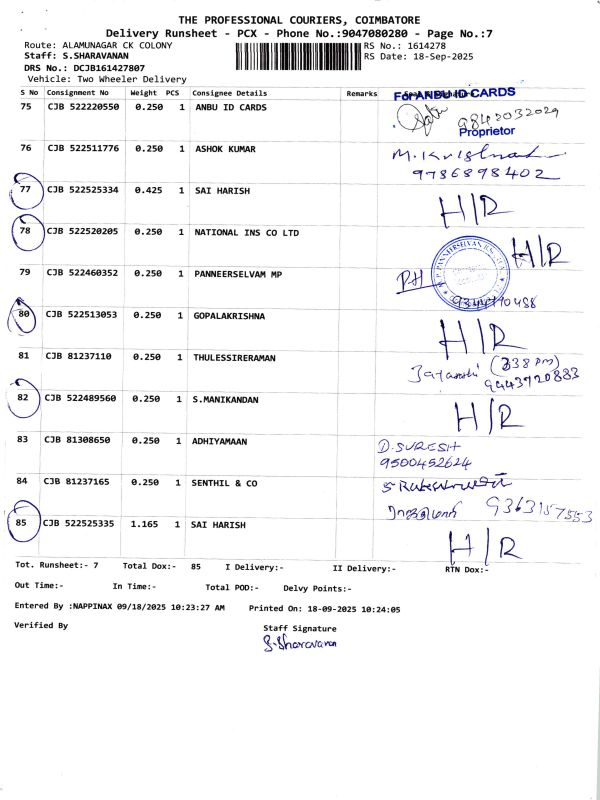 THE PROFESSIONAL COURIERS, COIMBATORE
Delivery Runsheet - PCX - Phone No.:9047080280 - Page No.:7
Route: ALAMUNAGAR CK COLONY RS No.: 1614278
Staff: S.SHARAVANAN RS Date: 18-Sep-2025
DRS No.: DCJB161427807
Vehicle: Two Wheeler Delivery
S No Consignment No Weight PCS Consignee Details Remarks
For ANBU ID CARDS
75 CJB 522220550 0.250 1 ANBU ID CARDS 9842032029
Proprietor
76 CJB 522511776 0.250 1 ASHOK KUMAR
9786898402
77 CJB 522525334 0.425 1 SAI HARISH H/R
78 CJB 522520205 0.250 1 NATIONAL INS CO LTD H/R
79 CJB 522460352 0.250 1 PANNEERSELVAM MP
80 CJB 522513053 0.250 1 GOPALAKRISHNA H/R
81 CJB 81237110 0.250 1 THULESSIRERAMAN
9443720883
82 CJB 522489560 0.250 1 S.MANIKANDAN H/R
83 CJB 81308650 0.250 1 ADHIYAMAAN D.SURESH
9500452624
84 CJB 81237165 0.250 1 SENTHIL & CO
9363157553
85 CJB 522525335 1.165 1 SAI HARISH H/R
Tot. Runsheet:- 7 Total Dox:- 85 I Delivery:- II Delivery:- RTN Dox:-
Out Time:- In Time:- Total POD:- Delvy Points:-
Entered By :NAPPINAX 09/18/2025 10:23:27 AM Printed On: 18-09-2025 10:24:05
Verified By Staff Signature
S.Sharavanan